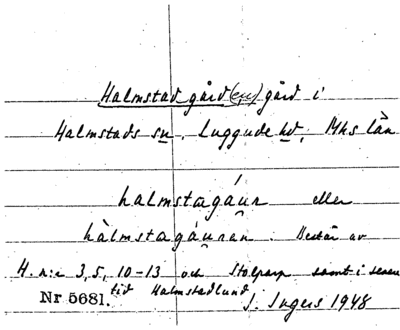 Halmstad gård (en) gård i
Halmstads sn, Luggude hd, Mhs län
halmstagáu̯r eller
hàlmstagáu̯ran. Består av
H. n:r 3, 5, 10-13 och Stolparp samt i senare
tid Halmstadlund
Nr 5681. J. Ingers 1948